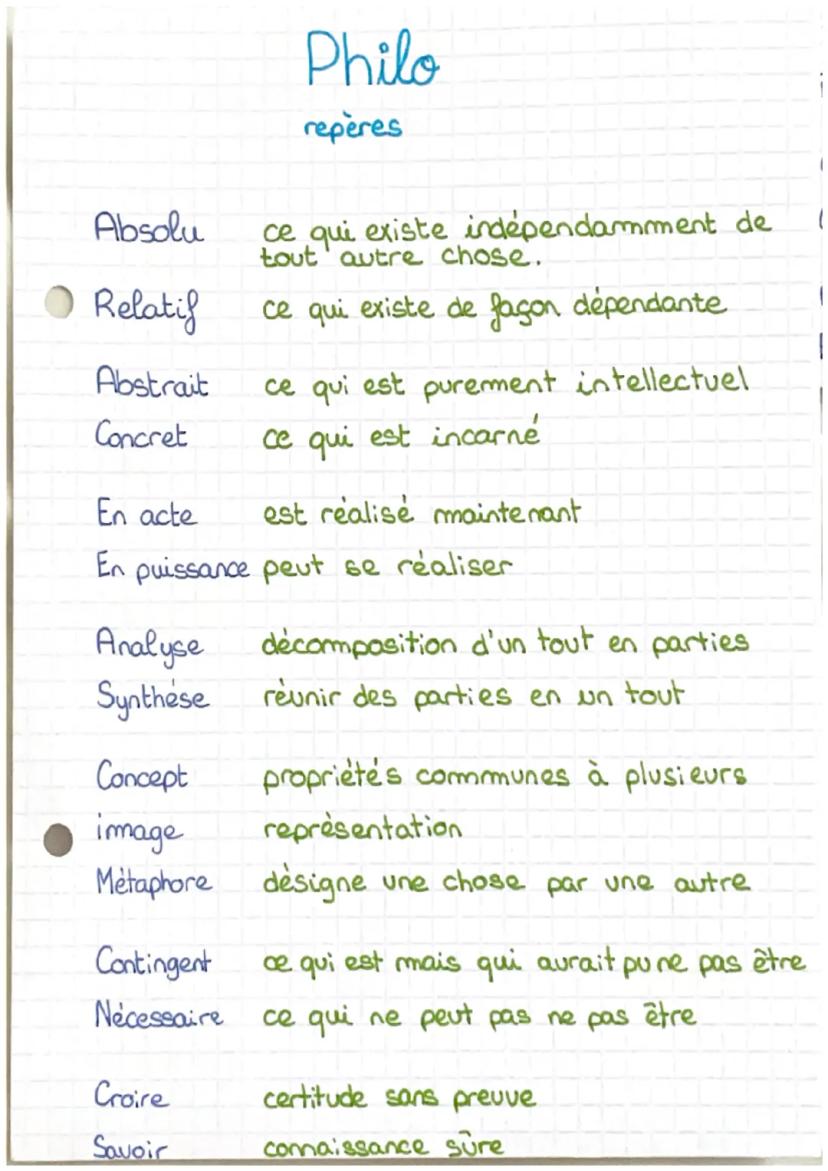 Philo
repères
Absolu ce qui existe indépendamment de
tout autre chose.
Relatif ce qui existe de façon dépendante
Abstrait ce qui est purement intellectuel
Concret ce qui est incarné
En acte est réalisé maintenant
En puissance peut se réaliser
Analyse décomposition d'un tout en parties
Synthése réunir des parties en un tout
Concept propriétés communes à plusieurs
image représentation
Métaphore désigne une chose par une autre
Contingent ce qui est mais qui aurait pu ne pas être
Nécessaire ce qui ne peut pas ne pas être
Croire certitude sans preuve
Savoir connaissance sûre